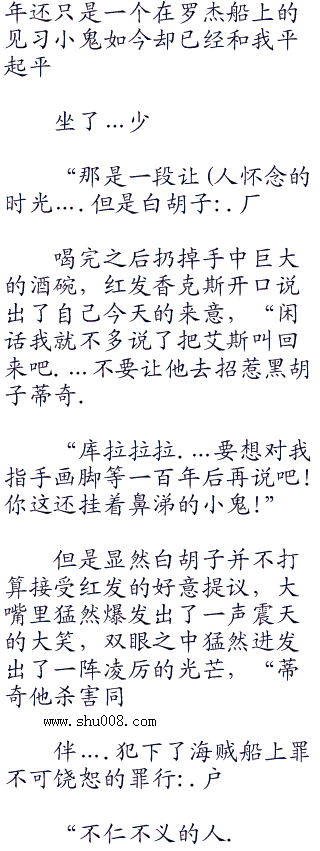 年还只是一个在罗杰船上的
见习小鬼如今却已经和我平
起平
坐了…少
“那是一段让(人怀念的
时光….但是白胡子:.厂
喝完之后扔掉手中巨大
的酒碗，红发香克斯开口说
出了自己今天的来意，“闲
话我就不多说了把艾斯叫回
来吧.…不要让他去招惹黑胡
子蒂奇.
“库拉拉拉.…要想对我
指手画脚等一百年后再说吧!
你这还挂着鼻涕的小鬼!”
但是显然白胡子并不打
算接受红发的好意提议，大
嘴里猛然爆发出了一声震天
的大笑，双眼之中猛然迸发
出了一阵凌厉的光芒，“蒂
奇他杀害同
www.shu008.com
伴….犯下了海贼船上罪
不可饶恕的罪行:.户
“不仁不义的人.